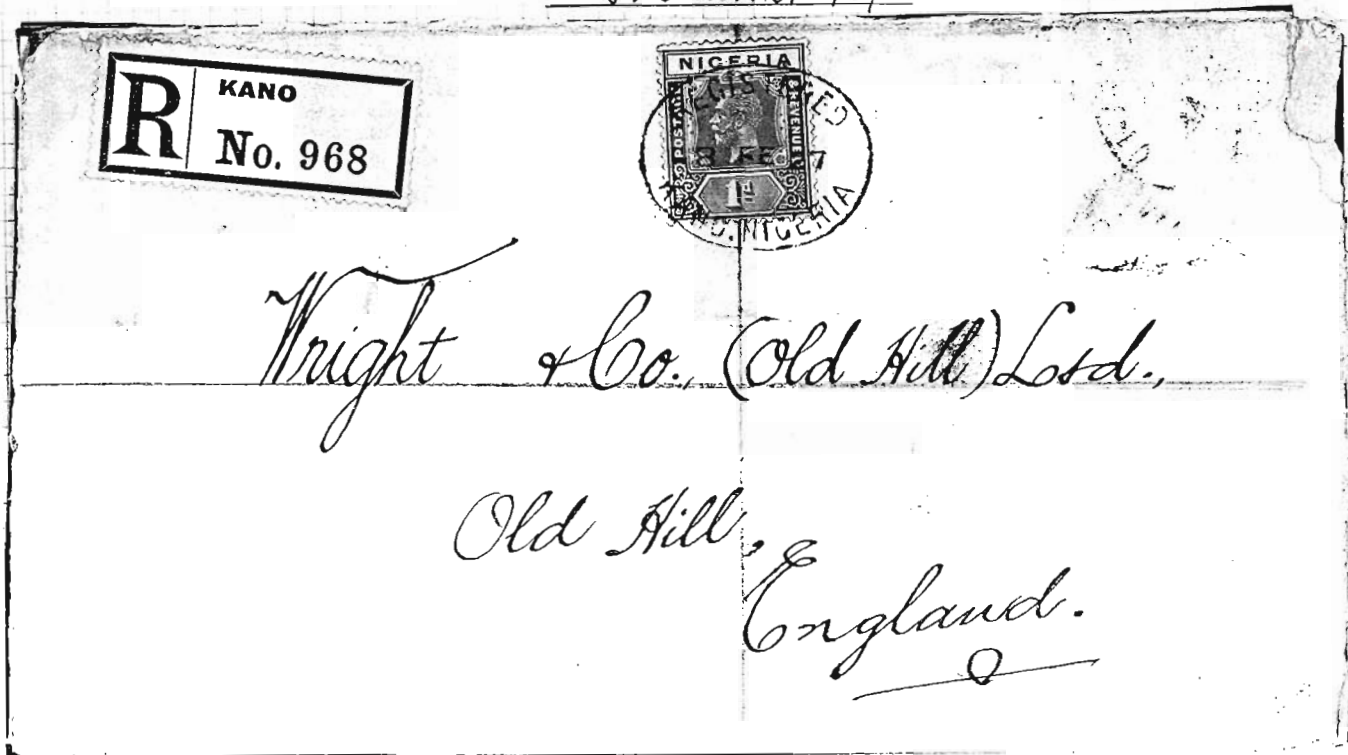 R KANO
No. 968
NIGERIA
POSTAGE & REVENUE
1d
REGISTERED
8 FE 7
KANO. NIGERIA
Wright & Co., (Old Hill) Ltd.,
Old Hill,
England.